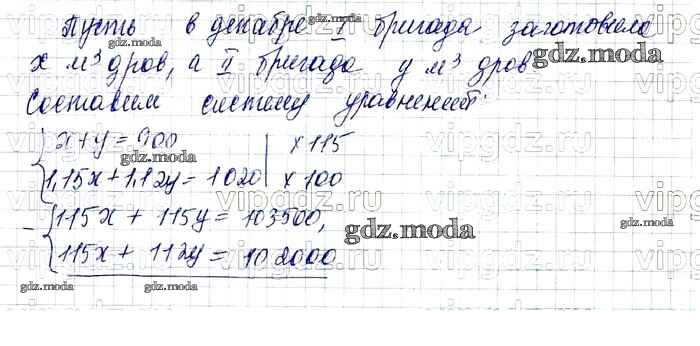 Пусть в декабре I бригада заготовила
x м³ дров, а II бригада y м³ дров
Составим систему уравнений:
{ x + y = 900 | x 115
{ 1,15x + 1,12y = 1020 | x 100
- { 115x + 115y = 103500,
{ 115x + 112y = 102000
gdz.moda
gdz.moda
gdz.moda
gdz.moda
gdz.moda
gdz.moda
gdz.moda
gdz.moda
vipgdz.ru
vipgdz.ru
vipgdz.ru
vipgdz.ru